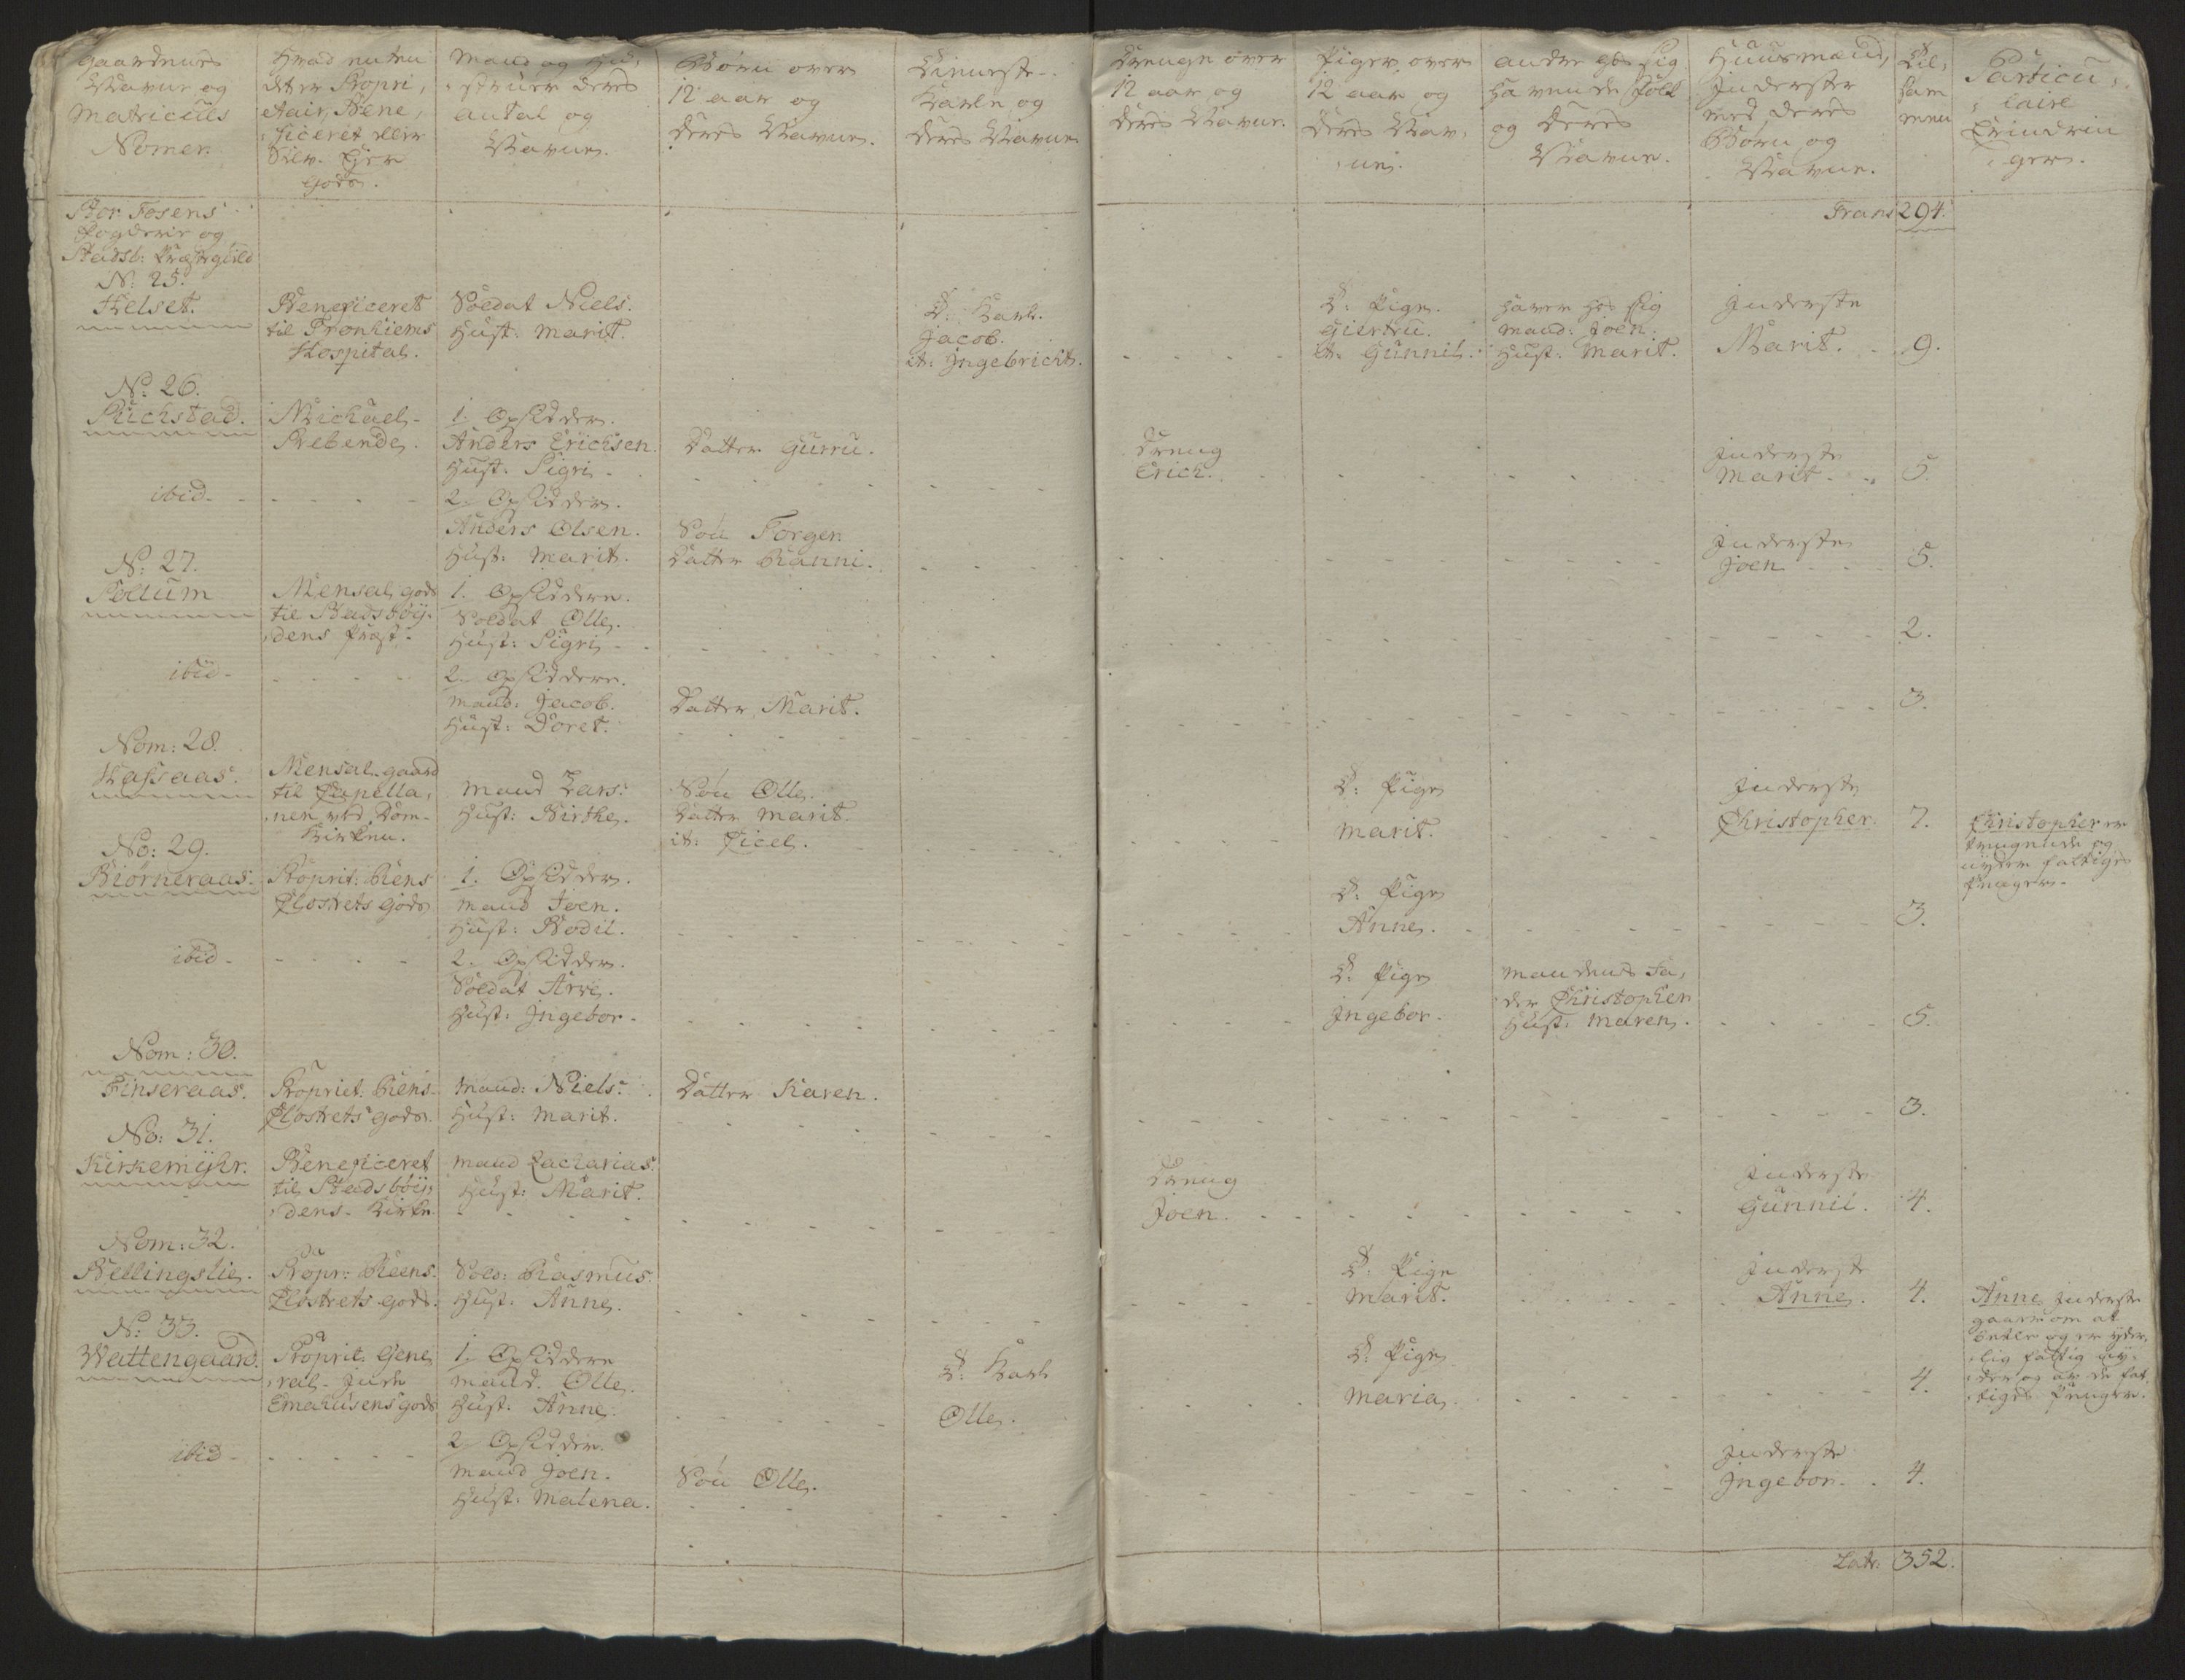 Gaardenes
Navne og
Matriculs
Nomer.
Hvad enten
det er Propri,
etair, Bene,
ficeret eller
Gods.
Mand og Hu,
struer deres
antal og
Navne.
Børn over
12 aar og
deres Navne.
Tieneste-
Karle og
deres Navne
Drenge over
12 aar og
deres Navne.
Piger over
12 aar og
deres Nav,
ne.
andre hos sig
havende Folk
og deres
Navne.
Huusmænd,
Inderster
med deres
Børn og
Navne.
Til,
sam
men
Particu,
laire
Erindrin
ger.
Stor Fosens
Fogderie og
Stadsb: Præstegield
Trans 294.
N: 25.
Helset.
Beneficeret
til Tronhiems
Hospital.
Soldat Niels.
Hust: Marit.
T: Karl.
Jacob.
it: Ingebricht.
T: Pige.
Giertru.
it: Gunnil.
haver hos sig
mand: Joen.
Hust: Marit.
Inderste
Marit.
9.
No: 26.
Richstad.
Michael-
Prebende.
1. Opsidder.
Anders Erichsen.
Hust: Sigri
Datter Gurru.
Dreng
Erich.
Inderste
Marit.
5.
ibid-
2. Opsidder.
Anders Olsen.
Hust: Marit.
Søn Torger
Datter Ranni.
Inderste
Joen
5.
N: 27.
Sollum
Mensal gods
til Stadsbøy-
dens Præst.
1. Opsiddere.
Soldat Olle.
Hust: Sigri
2.
ibid-
2. Opsiddere.
mand: Jacob.
Hust: Doret.
Datter Marit.
3.
Nom: 28.
Hassaas.
Mensal-gaard
til Capella,
nen ved Dom-
Kirken.
Mand Lars.
Hust: Birthe.
Søn Olle.
Datter Marit.
it: Zicel.
T: Pige
Marit.
Inderste
Christopher.
7.
Christopher er
trengende og
nyder fattiges
Penger.
No: 29.
Biørneraas.
Proprit: Reins
Closters Gods
1. Opsidder.
mand Joen.
Hust: Bodil.
T: Pige
Anne.
3.
ibid-
2. Opsidder.
Soldat Arve.
Hust: Ingebor.
T: Pige
Ingebor.
mandens Fa,
der Christopher
Hust: Maren.
5.
Nom: 30.
Finseraas.
Propriet: Reins-
Closters gods.
Mand: Niels.
Hust: Marit.
Datter Karen.
3.
No: 31.
Kirkemyhr.
Beneficeret
til Stadsbøy,
dens Kirke
Mand Zacharias.
Hust: Marit.
Dreng
Joen.
Inderste
Gunnil.
4.
Nom: 32.
Bellingslie.
Propr: Reens.
Closters gods.
Sold: Rasmus.
Hust: Anne.
T: Pige
Marit.
Inderste
Anne.
4.
Anne Inderste
gaar om at
betle og er yder,
lig fattig ny,
der og av de fat,
tiges Penger.
N: 33.
Wattengaard.
Proprit: Gene,
ral-
Emahusens gods
1. Opsiddere
mand. Olle.
Hust: Anne.
T: Karl
Olle.
T: Pige
Maria.
4.
ibid-
2. Opsidder.
Mand Joen.
Hust: Malena.
Søn Olle.
Inderste
Ingebor.
4.
Latr: 352.